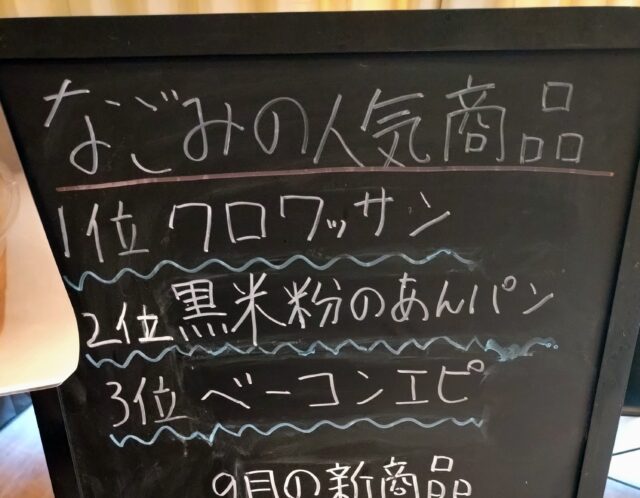 なごみの人気商品
1位 クロワッサン
2位 黒米粉のあんパン
3位 ベーコンエピ
9月の新商品